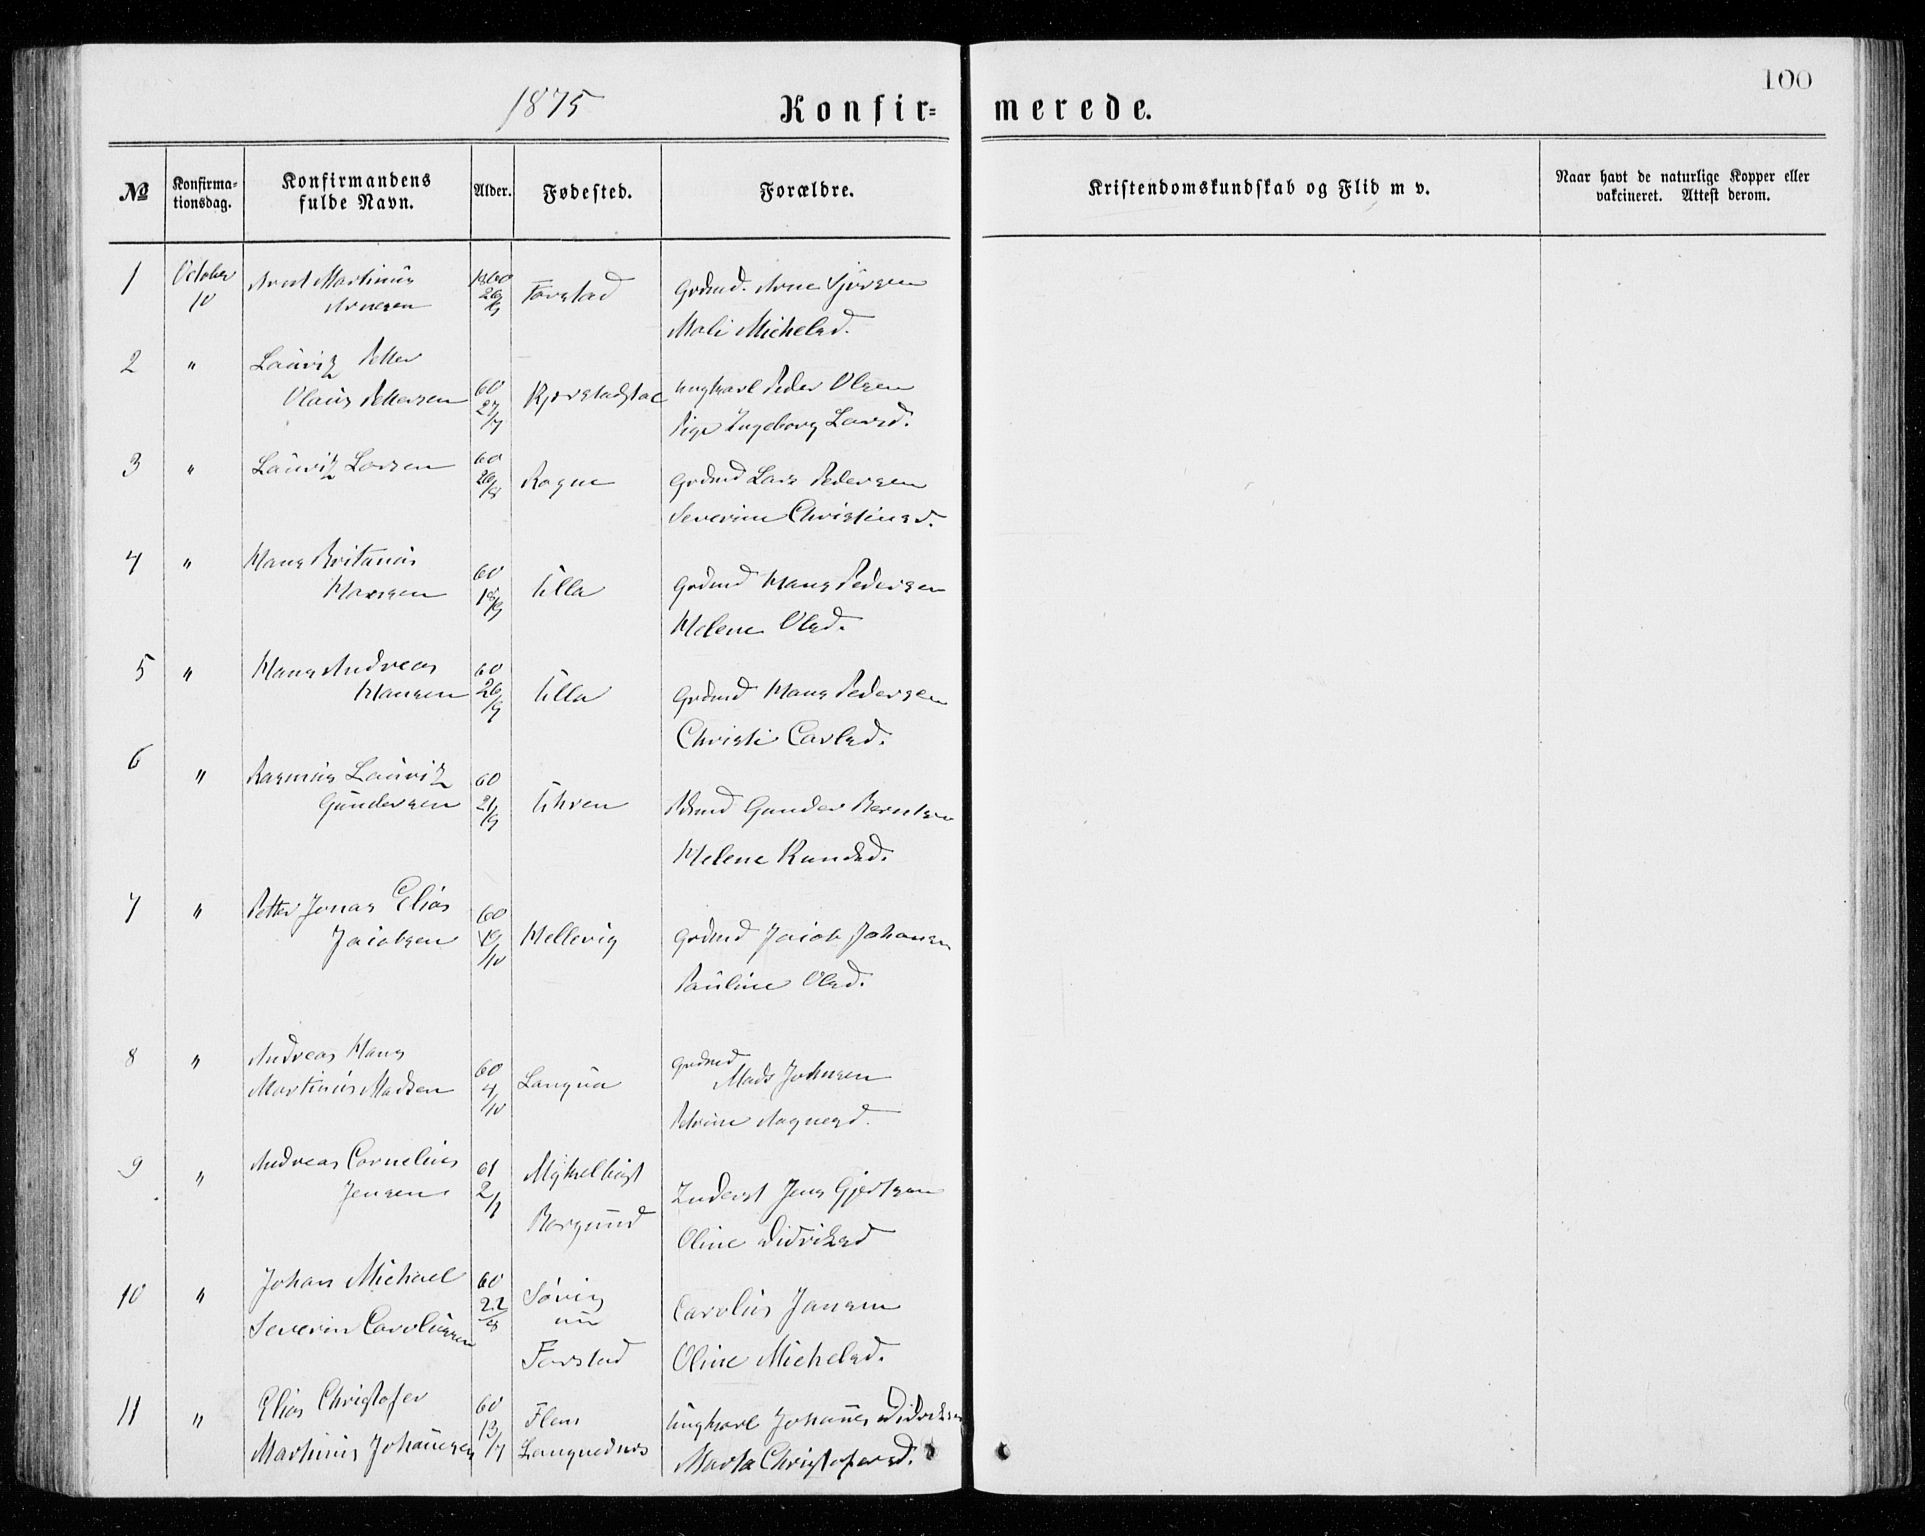 100
1875 Konfirmerede.
№ Konfirmationsdag. Konfirmandens fulde Navn. Alder. Fødested. Forældre. Kristendomskundskab og Flid m v. Naar havt de naturlige Kopper eller vakcineret. Attest derom.
1 October 10 Arnt Martinus Arnesen 1860 Farstad Grdmd. Arne
Mali Michelsd.
2 " Lauritz Petter
Olaus Pettersen 60 27/7 Ungkarl Peder Olsen
Pige Ingeborg Larsd.
3 " Lauritz Larsen 60 26/8 Rogne Grdmd Lars Pedersen
Severine
4 " Hans Hansen 60 18/9 Ulla Grdmd Hans Pedersen
Helene Olsd.
5 " Hans Andreas Hansen 60 26/9 Ulla Grdmd Hans Pedersen
Christi Carlsd.
6 " Rasmus Lauritz Gundersen 60 21/9 Uhren Gunder Berntsen
Helene Knudsd.
7 " Petter Jonas Elias Jacobsen 60 19/10 Hellevig Grdmd Jacob Johansen
Pauline Olsd.
8 " Andreas Hans
Martinus Madsen 60 4/10 Longva Grdmd Mads Johnsen
Petrine
9 " Andreas Cornelius Jensen 61 2/1 Myklebust
Borgund Inderst Jens Gjertsen
Oline Didriksd
10 " Johan Michael
Severin Carolussen 60 22/8 Søvig
nu
Farstad Carolus Jansen
Oline Michelsd.
11 " Elias Christofer
Martinus Johannesen 60 13/7 Flem
Longvednes Ungkarl Johannes Didriksen
Marta Christofersd.